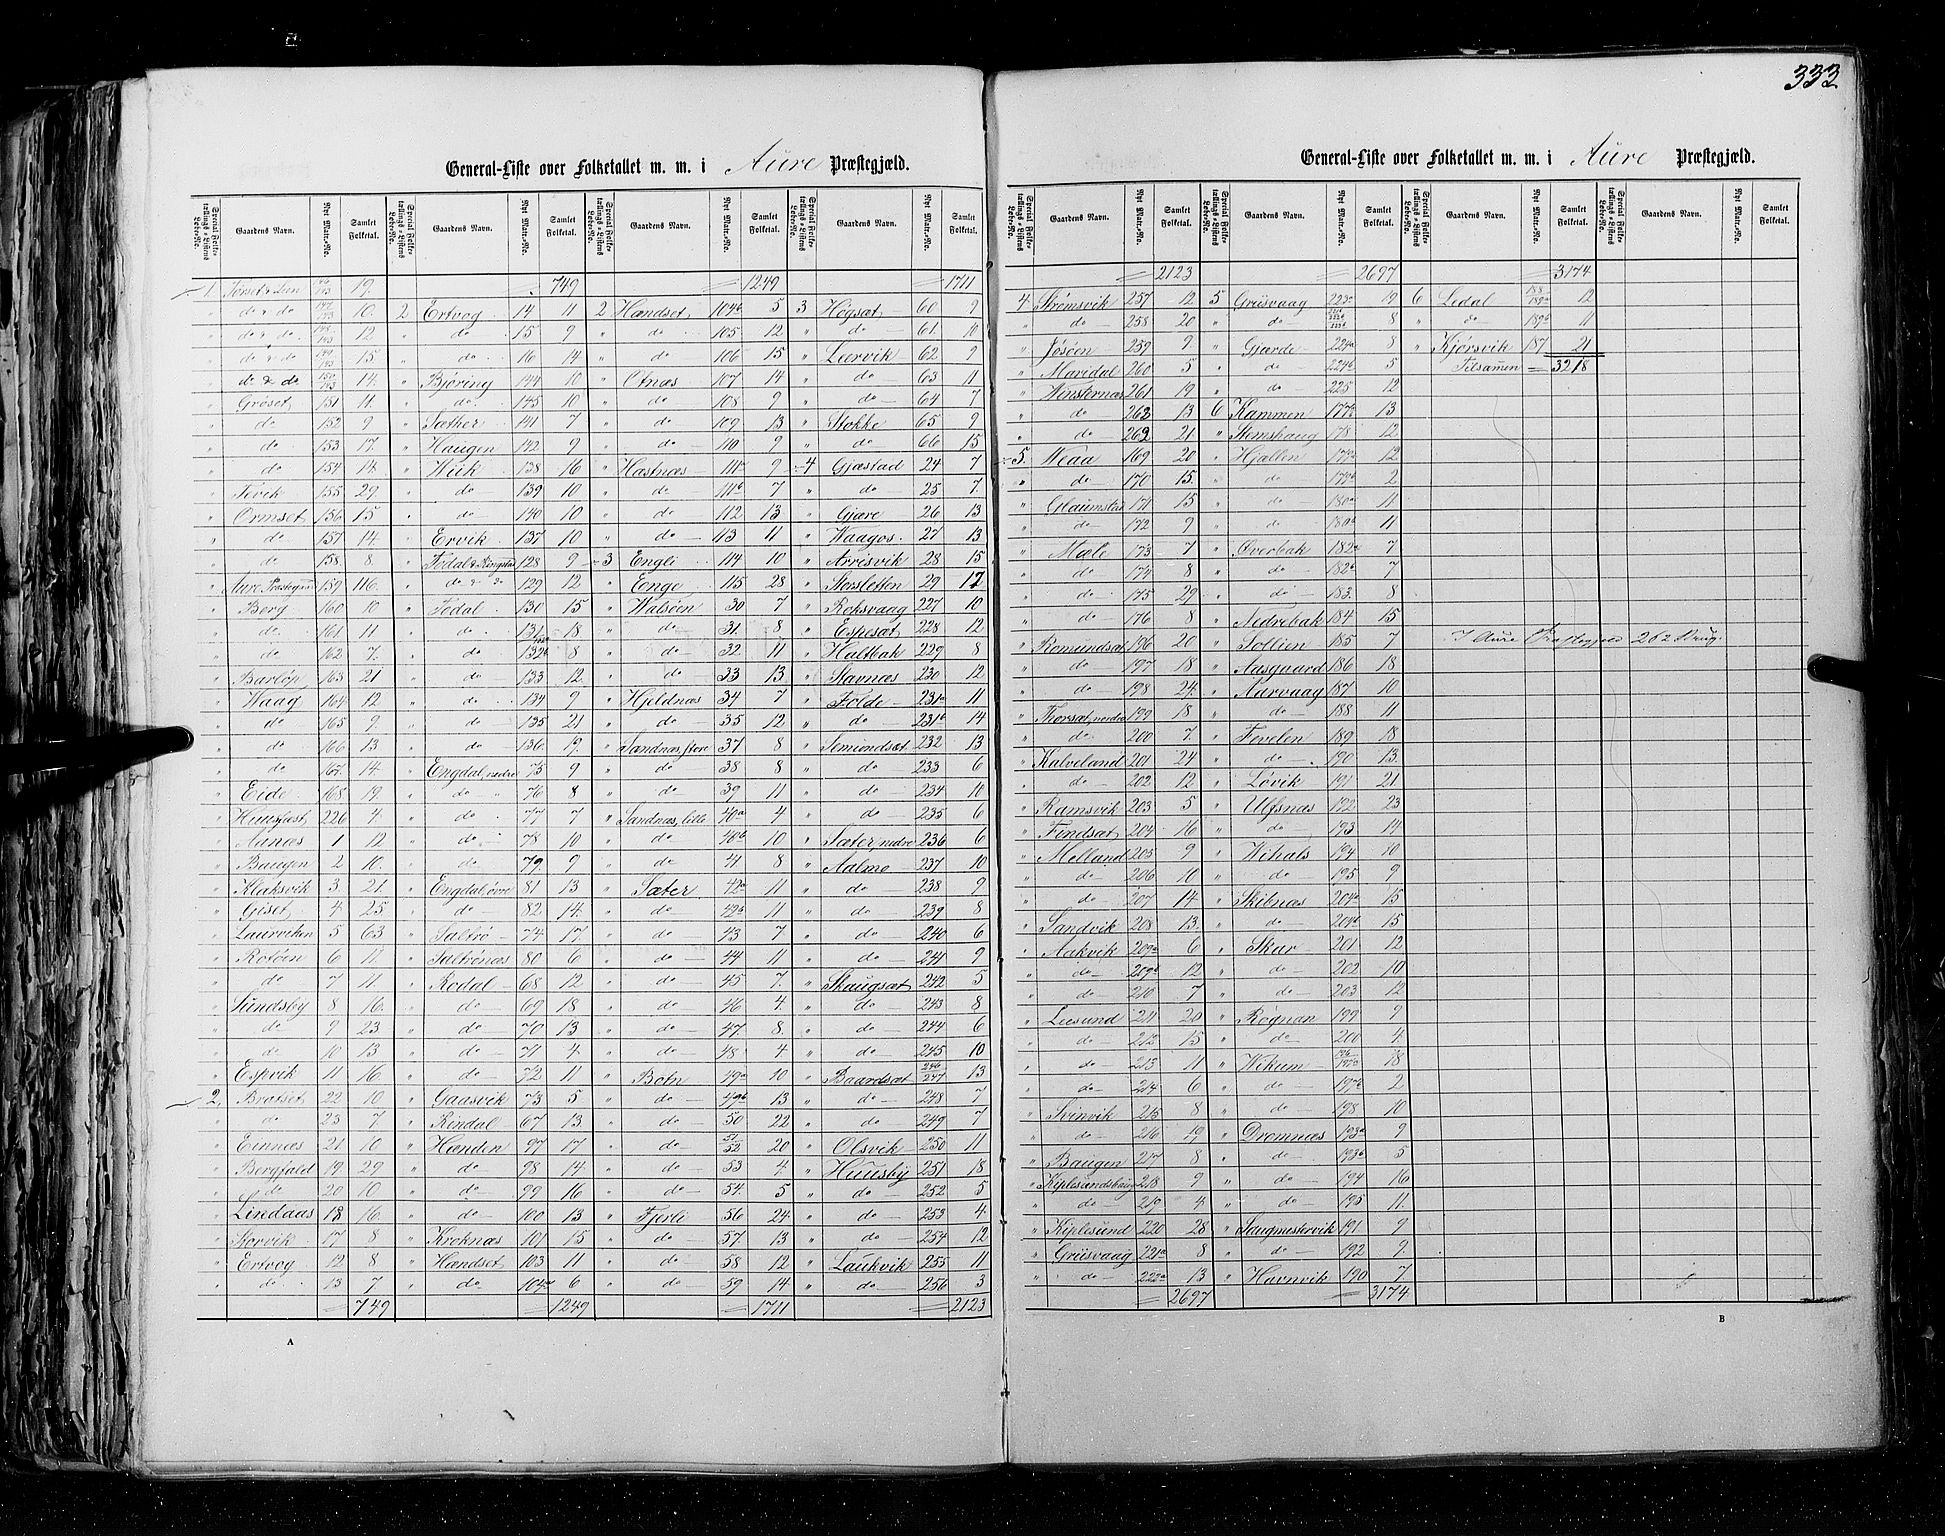 333
General-Liste over Folketallet m. m. i Aure Præstegjæld.
Special Folketællings-Listens Løbe-No. Gaardens Navn. Nyt Matr.-No. Samlet Folketal.
1. Torset & Leen 146/193 19.
" do & do 147/193 10.
" do & do 148/193 12
" do & do 149/193 15
" do & do 150/193 14.
" Grøset 151 11.
" do 152 9
" do 153 17.
" do 154 18
" Tevik 155 29.
" Ormset 156 15
" do 157 14.
" do 158 8.
" Aure Præstegaard 159 116.
" Berg 160 10
" do 161 11
" do 162 7.
" Barløp 163 21
" Waag 164 12
" do 165 9.
" do 166 13
" do 167. 14.
" Eide 168 19.
" 226 4.
" Aanæs 1 12
" Baugen 2 10.
" Klaksvik 3. 21.
" Giset 4 25
" Laurviken 5 63
" Rotøen 6 11
" do 7 11.
" Sundsby 8 16.
" do 9 23
" do 10 13
" Espvik 11 16.
2. Brotset 22 10
" do 23 7.
" Einnæs 21 10
" Bergfald 19 29
" do 20 10.
" Livedaas 18 16.
" Korvik 17 8
" Ertvog 12 8
" do 13 7
749
749
2 Ertvog 14 11
" do 15 9
" do 16 14
" Bjøring 144 10
" do 145 10
" Sæther 141 7
" Haugen 142 9
" Wiik 138 16
" do 139 10
" do 140 10
" Ervik 137 10
" Todal & Ringstad 128 9
" do & do 129 12
" Todal 130 15
" do 131 18
" do 132b 8
" do 133 12.
" do 134 9
" do 135 21
" do 136 19.
" Engdal, nedre 75 9
" do 76 8
" do 77 7
" do 78 10
" do 79. 9
" Engdal, øvre 81 13
" do 82. 14.
" Taltrø 74 17.
" Taltrønæs 80 6
" Rodal 68 12
" do 69 18
" do 70 13
" do 71 4
" do 72 11
" Gaasvik 73 5
" Rindal 67 13
" Hænden 97 17
" do 98 14
" do 99 16
" do 100 13
" Kroknæs 101 15
" Hændset 103 11
" do 104a 6
1249
1249
2 Hændset 104b 5
" do 105 12
" do 106 15
" Otnæs 107 14
" do 108 9
" do 109 13
" do 110 9
" Hæstnæs 111a 9
" do 111b 7
" do 112 13
" do 113 11
3 Engli 114 10
" Enge 115 28
" Walsøen 30 7
" do 31. 8
" do 32 11
" do 33 13
" Hjeldnæs 34 7
" do 35 12
" Sandnæs, store 37 8
" do 38 8
" do 39 11
" Sandnæs, lille 40a 4
" do 40b 10
" do 41 8
" Sæter 42a 11
" do 42b 11
" do 43 7
" do 44 11
" do 45 7.
" do 46 4.
" do 47 8.
" do 48 4
" Botn 49a 10
" do 49b 13
" do 50 22
" do 51/52 20
" do 53 4.
" do 54. 5
" Fjerli 56 24
" do 57. 13
" do 58 12
" do 59 14
1711
1711
3 Høgsæt 60 9
" do 61 10
" Leervik 62 9
" do 63 11
" do 64 7
" Stokke 65 9
" do 66 15
4 Gjæstad 24 7
" do 25 7.
" Gjøre 26 13
" Waagos 27 13
" Arrisvik 28 15
" Storsletten 29 17
" Roksvaag 227 10
" Espesæt 228 12
" Haltbak 229 8
" Stavnæs 230 12
" Folde 231a 11
" do 231b 14
" Semundsæt 232 13
" do 233 6
" do 234 10
" do 235 6
" Sæter, nedre 236 6
" Aalmo 237 10
" do 238 9
" do 239 8
" do 240 6
" do 241 9
" Skaugsæt 242 5
" do 243 8
" do 244 6
" do 245 10
" Baardsæt 246/247 13
" do 248 7
" do 249 7
" Olsvik 250 11
" Huusby 251 18
" do 252 5
" do 253 4.
" do 254 12
" Laukvik 255 11
" do 256 3
2123
A
General-Liste over Folketallet m. m. i Aure Præstegjæld.
Special Folketællings-Listens Løbe-No. Gaardens Navn. Nyt Matr.-No. Samlet Folketal.
2123
4 Strømsvik 257 12
" do 258 20
" Jøsøen 259 9
" Maridal 260 5
" Winsternæs 261 19
" do 262 13
" do 263 21
5. Meaa 169 20
" do 170 15.
" Glaumslas 171 15
" do 172 9
" Mæle 173 7
" do 174 8
" do 175 29
" do 176 8
" Romundsæt 196 20
" do 197 18
" do 198 24.
" Thorsæt, nordre 199 18
" do 200 7
" Kalveland 201 24
" do 202 12
" Ramsvik 203 5
" Findsæt 204 16
" Melland 205 9
" do 206 10
" do 207 14
" Sandvik 208 13.
" Aakvik 209a 6
" do 209b 12
" do 210 7
" Leesund 211 20
" do 212 15
" do 213 11
" do 214 6
" Svinvik 215 8
" do 216
" Baugen 217 8
" Kiplesundsbaug 218 9
" do 219 4
" Kiplesund 220 28
" Griisvaag 221a 8
" do 222a 13
2697
2697
5 Griisvaag 223a 19
" do 8
" Gjærde 224a 8
" do 224b 5
" do 225 12
6 Kammen 177a 13
" Stemshaug 178 12
" Hjællen 179a 12
" do 179b 2
" do 180a 11
" do 180b 11
" Øverbak 182a 7
" do 182b 7
" do 183. 8
" Nedrebak 184 15
" Sollien 185 7
" Aasgaard 186 18
" Aarvaag 187 10
" do 188 11
" Fevelen 189 18
" do 190 13.
" Løvik 191 21.
" Ulfsnæs 192 23
" do 193 14
" Wihals 194 10
" do 195 9
" Skibnæs 204a 15
" do 204b 15
" Skar 201 12
" do 202 10
" do 203 12
" Rognan 199 9
" do 200 4.
" Wikum 196/197a 18
" do 197b 2
" do 198 10
" Dromnæs 193a 9
" do 193b 5
" do 194 16
" do 195 11.
" Saugmestervik 191. 9
" do 192 9.
" Havnvik 190 7.
3174
3174
6 Ledal 188/189a 12
" do 189b 11
" Kjørsvik 187 21
Tilsamen 3218
I Aure Præstegjeld 262 Brug.
B